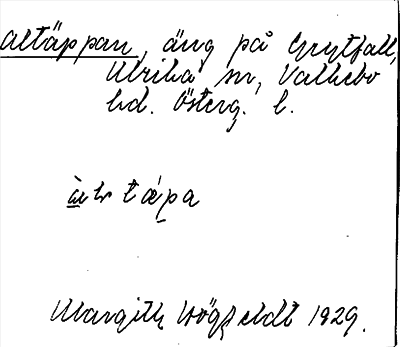 altäppan, äng på Grytfall,
Ulrika sn, Valkebo
hd. Österg. l.
tǽpa
Margith Högfeldt 1929.